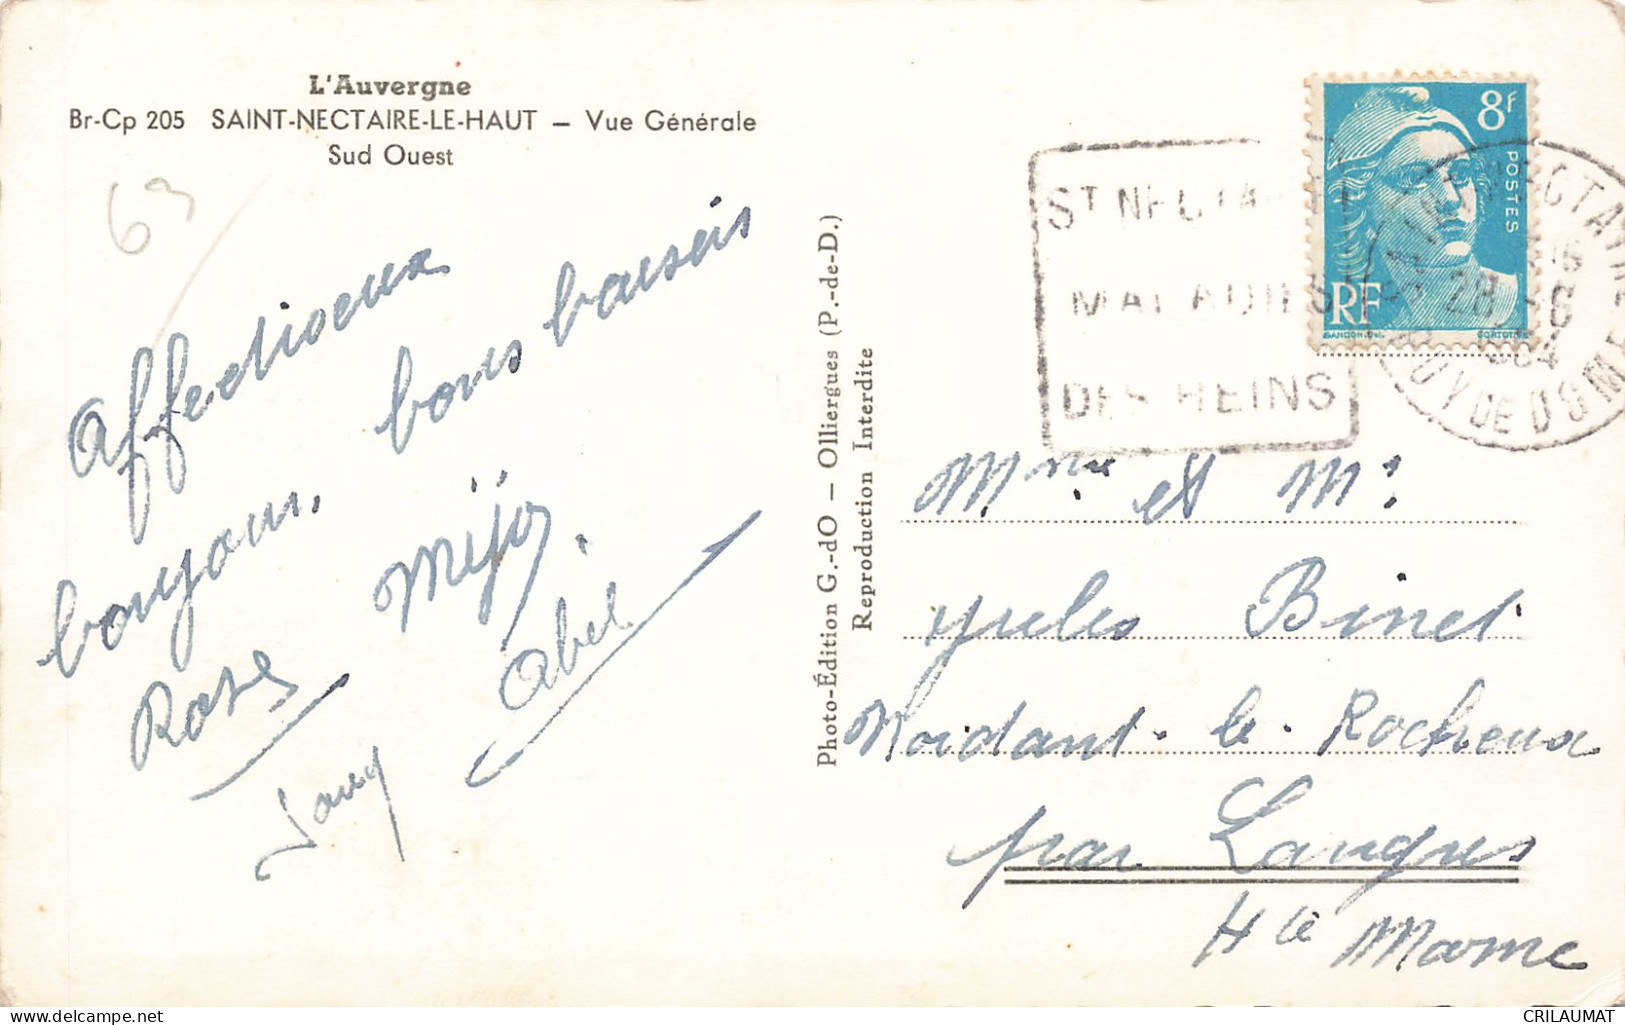 L'Auvergne
Br-Cp 205 SAINT-NECTAIRE-LE-HAUT — Vue Générale
Sud Ouest
63
Affectioeux
bons baisers
bonjour.
Mijo
Abel
Rose
Photo-Édition G.-dO — Olliergues (P.-de-D.)
Reproduction Interdite
8F
POSTES
RF
GANDON DEL.
CORTOT SC.
ST NECTAIRE
MALADIES
DES REINS
NECTAIRE
28 6
PUY DE DOME
Mme et Mr
Jules Binet
Noidant-le-Rocheux
par Langres
Hte Marne
CRILAUMAT